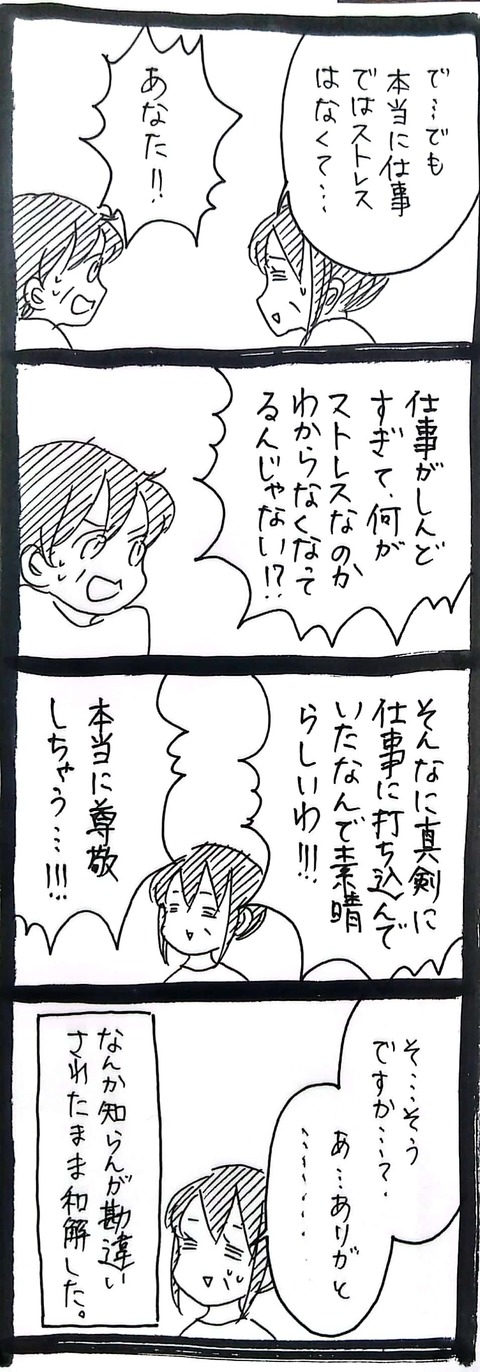 で…でも
本当に仕事
ではストレス
はなくて…
あなた!!
仕事がしんど
すぎて、何が
ストレスなのか
わからなくなって
るんじゃない!?
そんなに真剣に
仕事に打ち込んで
いたなんて素晴
らしいわ!!!
本当に尊敬
しちゃう…!!!
そ…そう
ですか…?
あ…ありがと
…………
なんか知らんが勘違い
されたまま和解した。